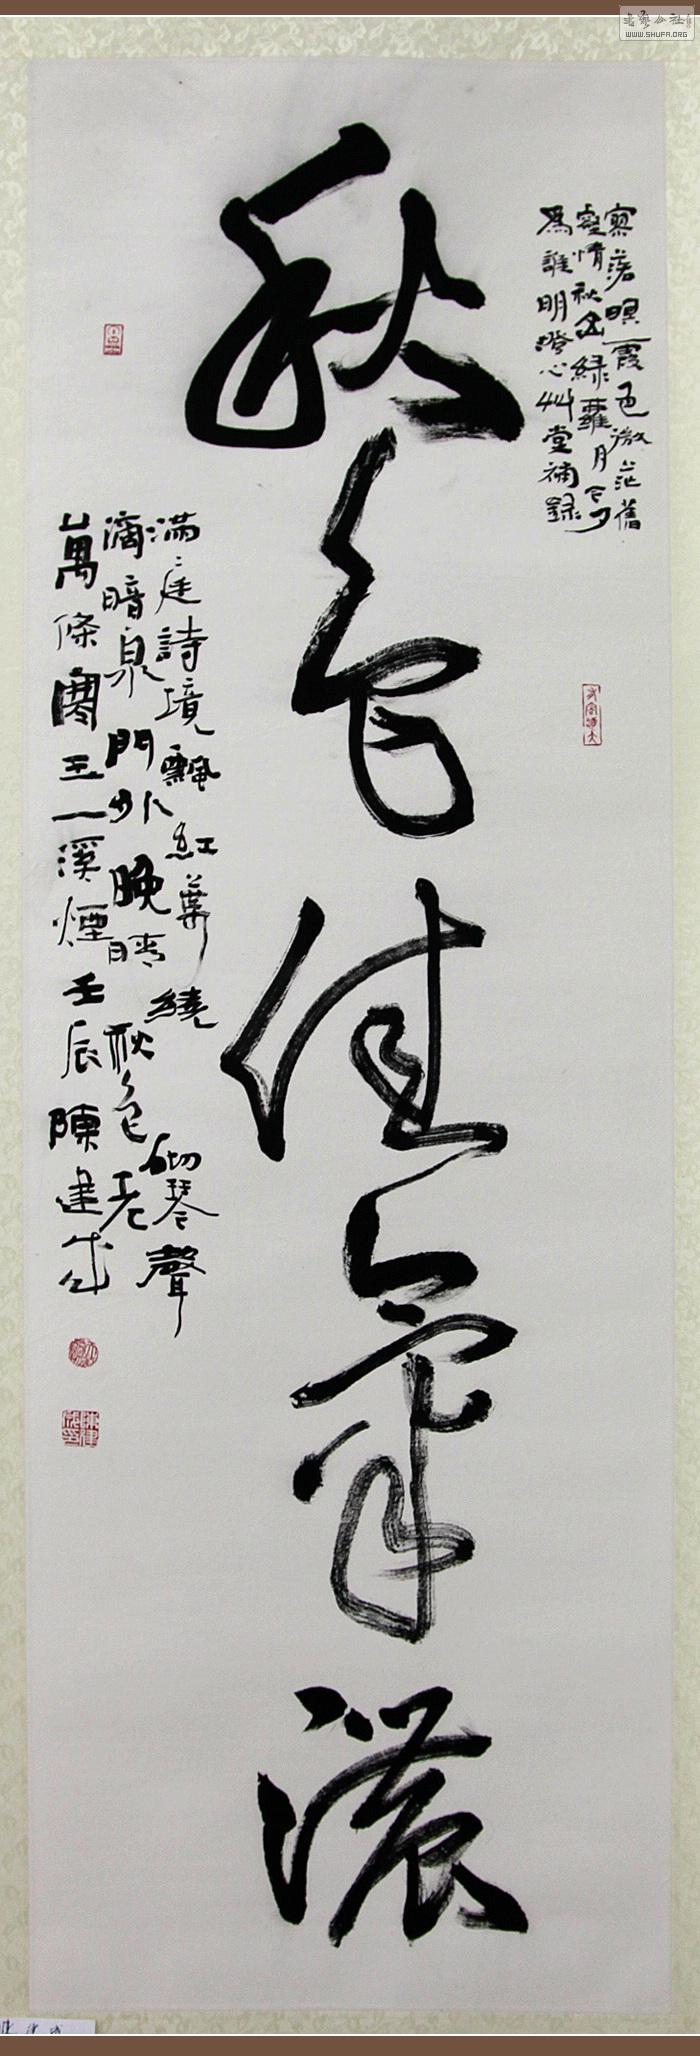 秋色佳氣濃
寥落暝霞色微茫舊
壑情秋山綠蘿月今夕
爲誰明澄心艸堂補錄
滿庭詩境飄紅葉繞砌琴聲
滴暗泉門外晚晴秋色老
萬條寒玉一溪煙壬辰陳建成
WWW.SHUFA.ORG